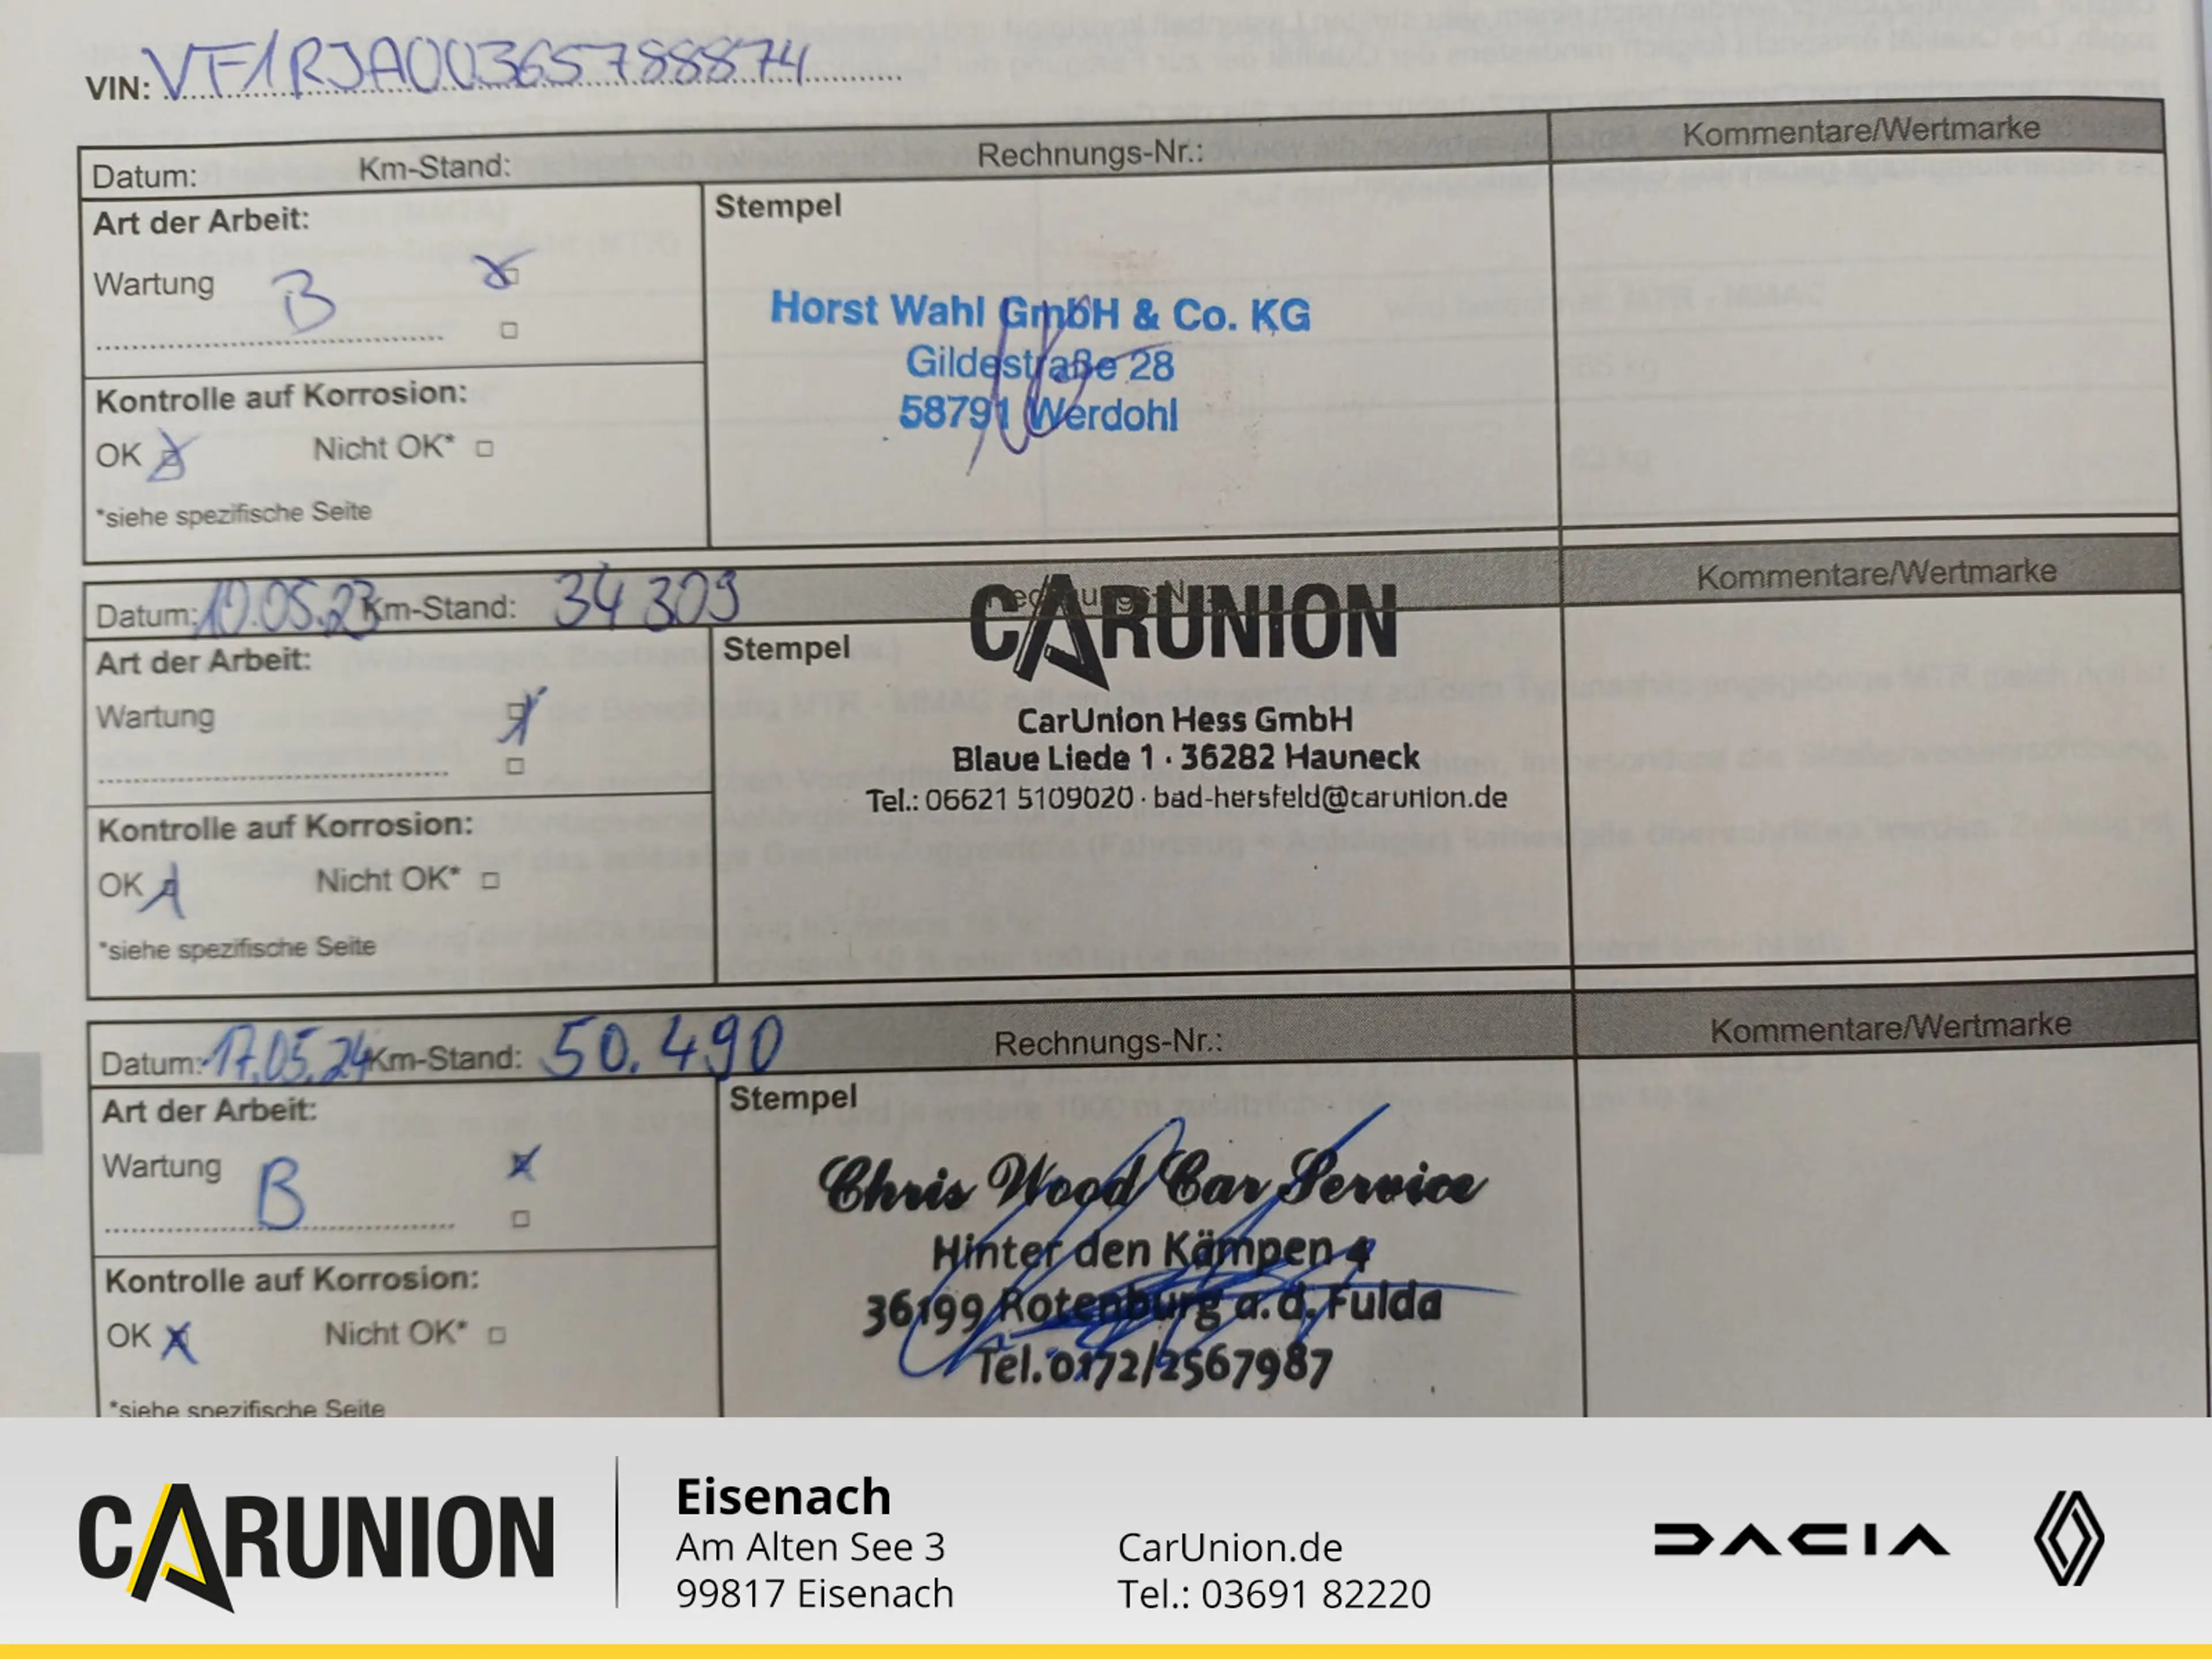 VIN: VF1RJA00365788874
Datum: Km-Stand: Rechnungs-Nr.: Kommentare/Wertmarke
Art der Arbeit:
Stempel
Wartung B
Horst Wahl GmbH & Co. KG
Gildestraße 28
58791 Werdohl
Kontrolle auf Korrosion:
OK Nicht OK*
*siehe spezifische Seite
Datum: 10.05.23 Km-Stand: 34 309 Rechnungs-Nr.: Kommentare/Wertmarke
CARUNION
Art der Arbeit:
Stempel
Wartung
CarUnion Hess GmbH
Blaue Liede 1 · 36282 Hauneck
Tel.: 06621 5109020 · bad-hersfeld@carunion.de
Kontrolle auf Korrosion:
OK Nicht OK*
*siehe spezifische Seite
Datum: 17.05.24 Km-Stand: 50.490 Rechnungs-Nr.: Kommentare/Wertmarke
Art der Arbeit:
Stempel
Wartung B
Chris Wood Car Service
Hinter den Kämpen 4
36199 Rotenburg a.d. Fulda
Tel. 0172/2567987
Kontrolle auf Korrosion:
OK Nicht OK*
*siehe spezifische Seite
CARUNION
Eisenach
Am Alten See 3
99817 Eisenach
CarUnion.de
Tel.: 03691 82220
DACIA